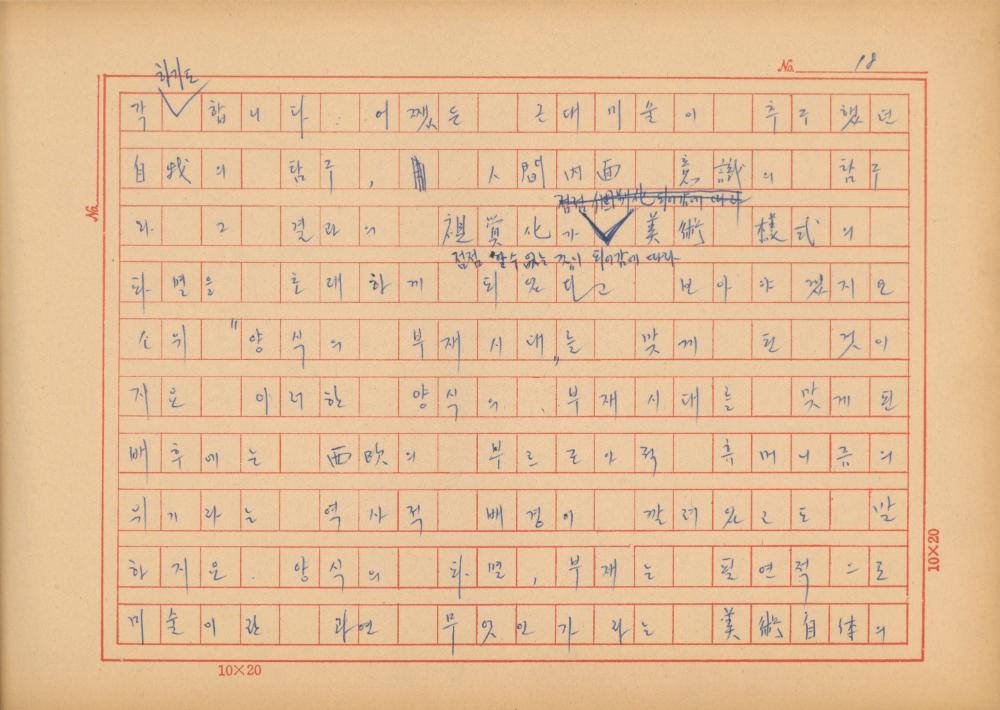 No. 18
하기도
각 합니다. 어쨌든 근대미술이 추구했던
自我의 탐구, 人間內面 意識의 탐구
와 그 결과의 視覺化가 美術 樣式의
점점 알 수 없는 것이 되어감에 따라
파멸을 초래하게 되었다고 보아야겠지요
소위 "양식의 부재시대"를 맞게 된 것이
지요 이러한 양식의 부재시대를 맞게된
배후에는 西欧의 부르조아적 휴머니즘의
위기라는 역사적 배경이 깔려있다고도 말
하지요. 양식의 파멸, 부재는 필연적으로
미술이란 과연 무엇인가 라는 美術自体의
No.
10×20
10×20